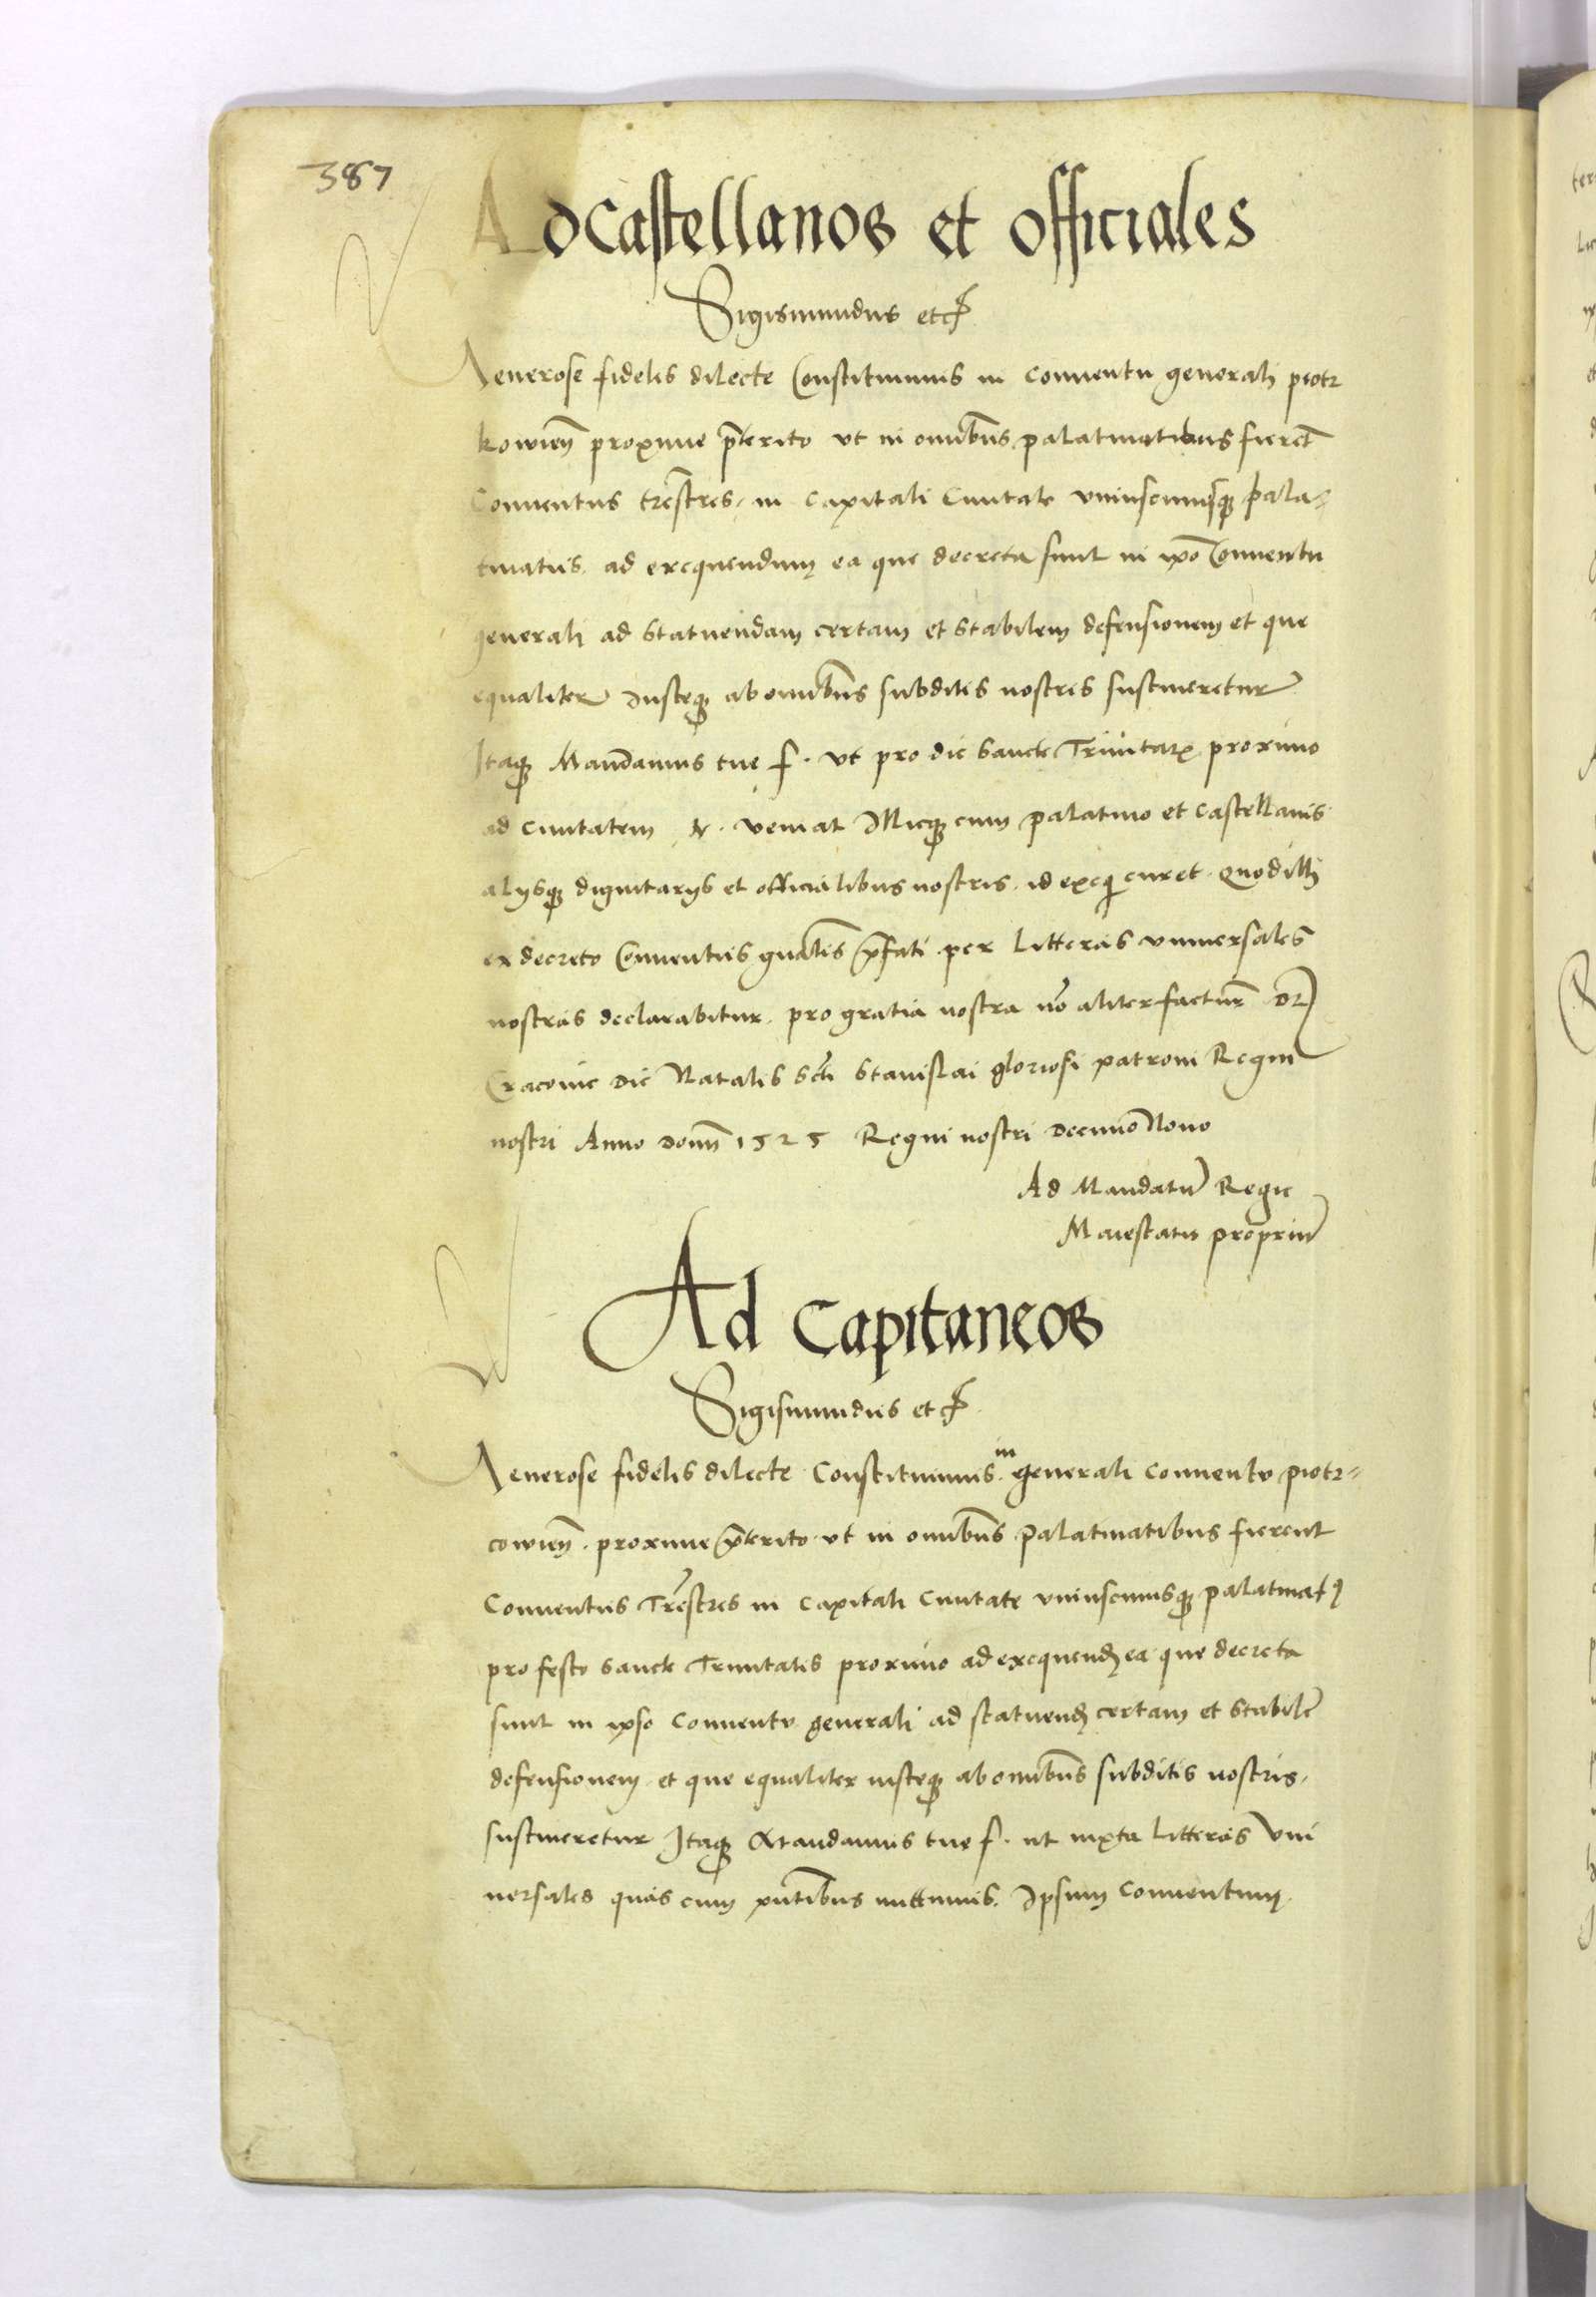 387
Ad Castellanos et officiales
Sigismundus etc
Generose fidelis dilecte Constituimus in conventu generali piotr
kowien̄ proxime p̄terito vt in omnibus palatinatibus fierēt
Conventus tr̄estres, in capitali Civitate vniuscuiusq palaˍ
tinatus, ad exequendum ea que decreta sunt in ip̄o Conventu
generali ad statuendam certam et stabilem defensionem et que
equaliter Justeq ab omnibus subditis nostris sustineretur
Itaq Mandamus tue f. vt pro die sancte Trinitatis proximo
ad civitatem N. veniat Illicq cum palatino et castellanis
alijsq dignitarijs et officialibus nostris, id exeq curet. Quod illi
ex decreto Conventus gn̄alis p̄fati per litteras vniversales
nostras declarabitur, pro gratia nostra nō aliter factur̄ Dat
Cracovie die Natalis scti Stanislai gloriosi patroni Regni
nostri Anno domini 1525 Regni nostri decimo Nono
Ad Mandatū Regie
Maiestatis propriū
Ad Capitaneos
Sigismundus etc
Generose fidelis dilecte Constituimus in generali conventu piotr=
cowien̄. proxime p̄terito vt in omnibus Palatinatibus fierent
Conventus Tr̄estres in capitali civitate vniuscuiusq palatinatus
pro festo sancte Trinitatis proximo ad exequend ea que decreta
sunt in ipso conventu generali ad statuend certam et stabilē
defensionem et que equaliter iusteq ab omnibus subditis nostris,
sustineretur Itaq Mandamus tue f. ut iuxta litteras Vni
versales quas cum pn̄tibus mittimus. Ipsum conventum